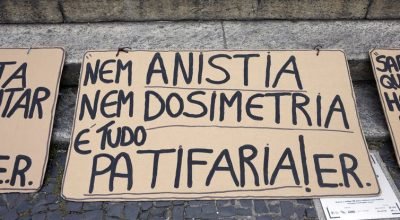 TA
TAR
E.R.
NEM ANISTIA
NEM DOSIMETRIA
É TUDO
PATIFARIA! E.R.
SA
QU
H